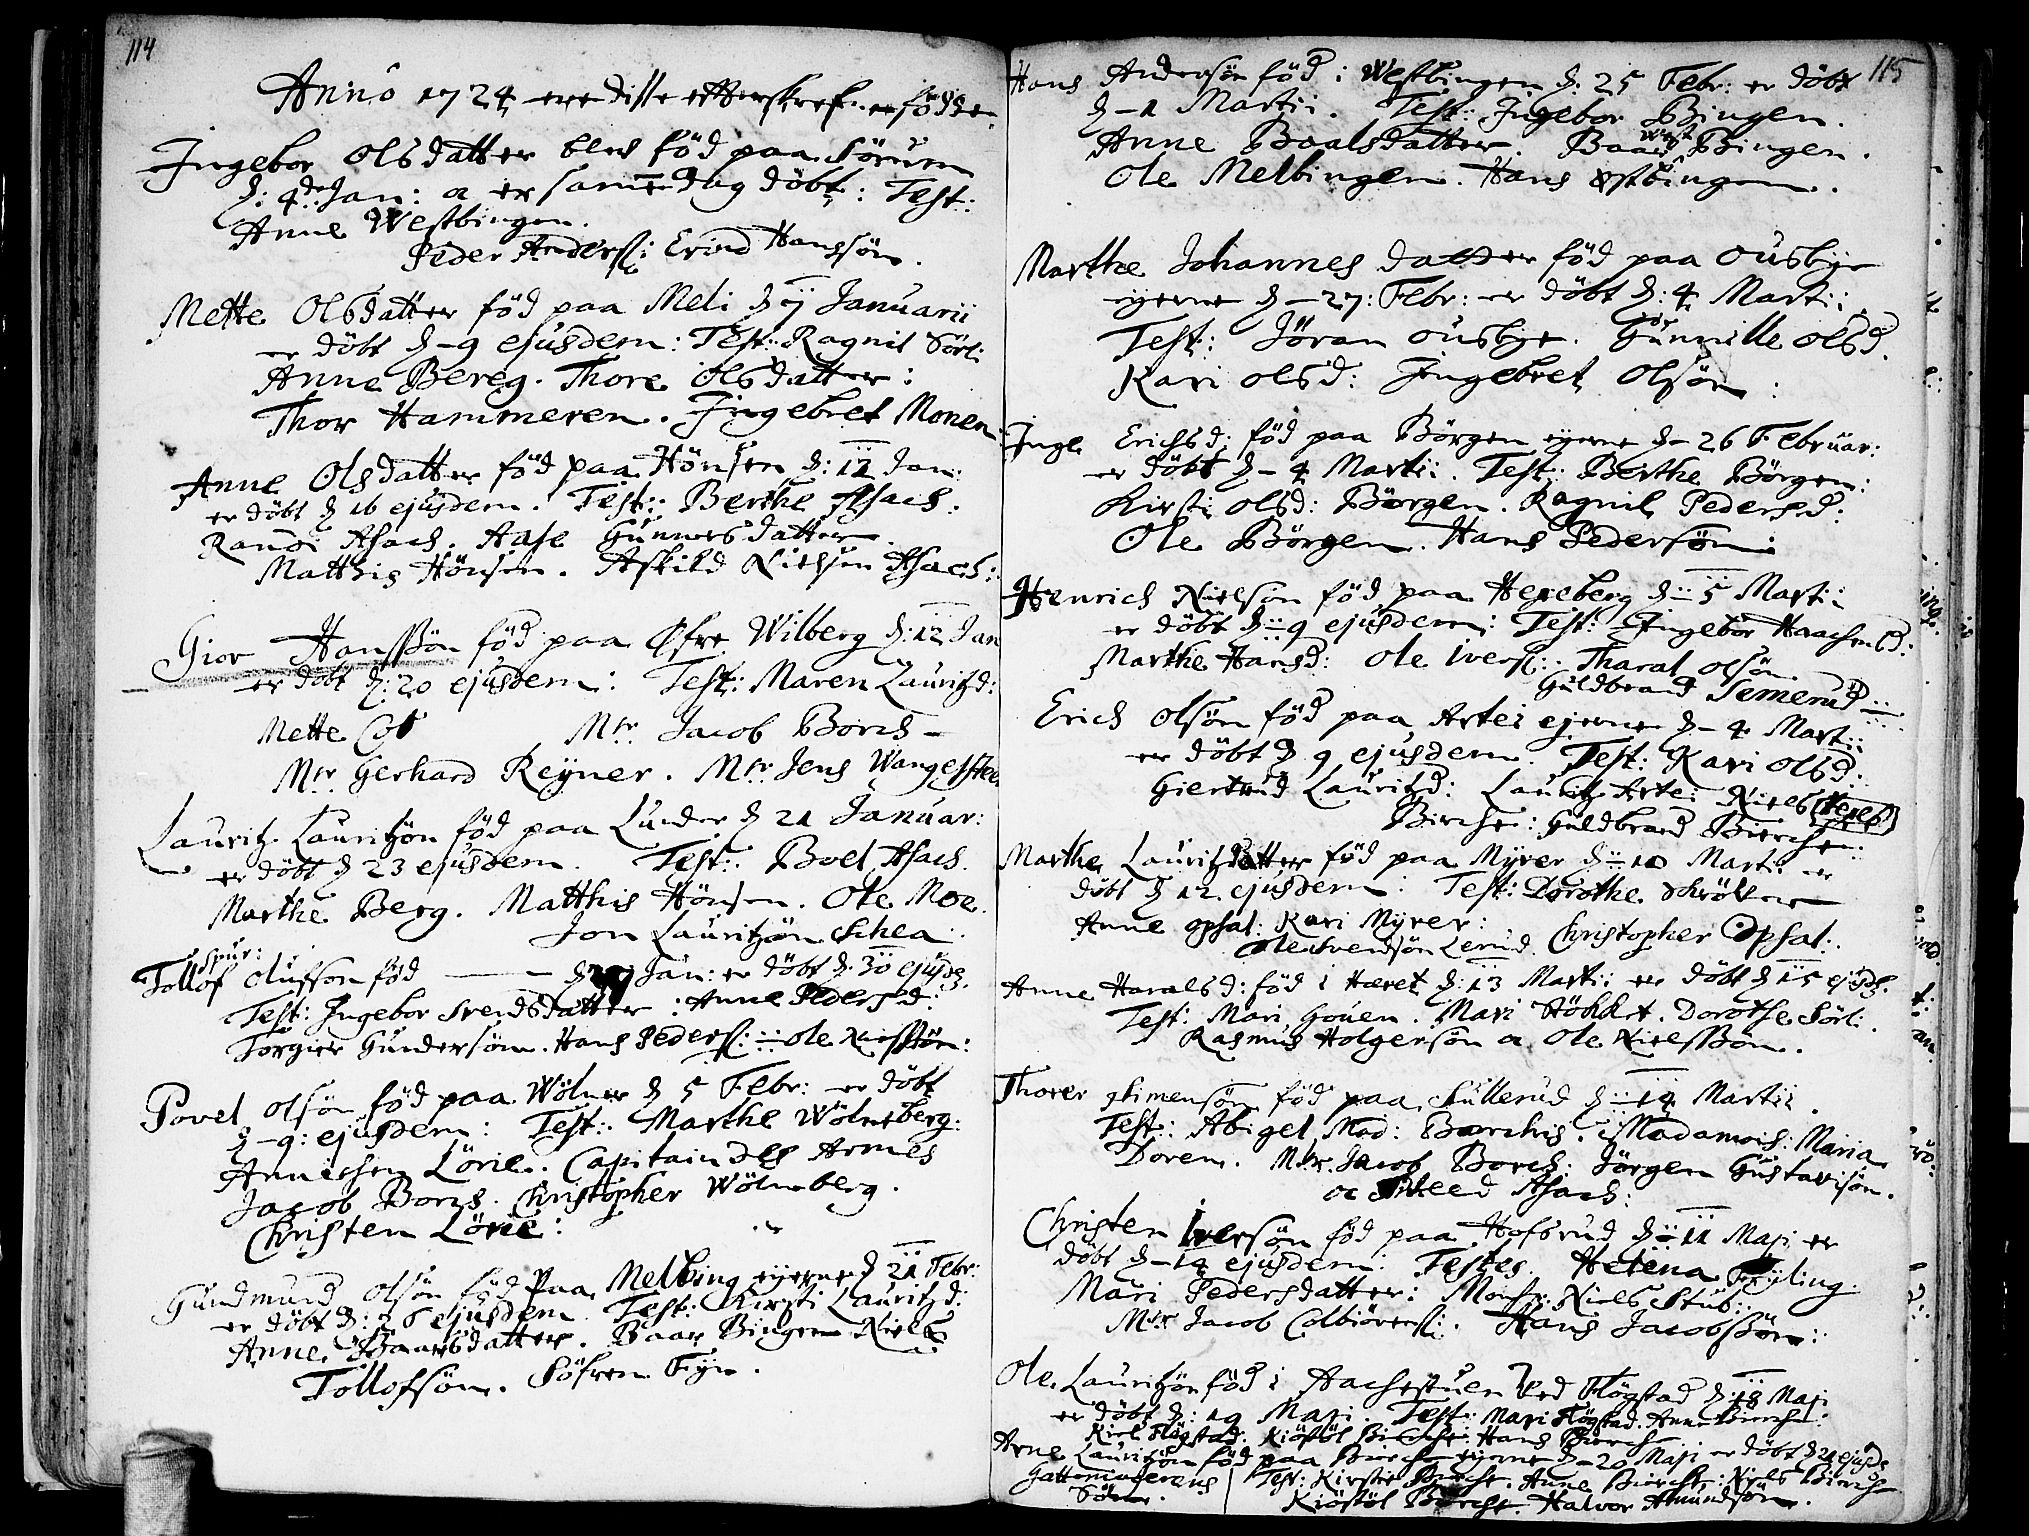 114
Anno 1724 ere disse efterskrefne fødde
Ingebor Olsdatter blef fød paa Sørum
d: 4de Jan: a er samme dag døbt: Test:
Anne Westbingen.
Peder Anders: Erind Hanssøn.
Mette Olsdatter fød paa Meli d 7 Januarii
er døbt d - 9 ejusdem: Test: Ragnil Sørli
Anne Bereg. Thore Olsdatter:
Thor Hammeren. Ingebret Monen
Anne Olsdatter fød paa Hønsen d: 12 Jan:
er døbt d 16 ejusdem. Test: Berthe Asach.
Randi Asach. Aase Gunnersdatter.
Matthis Hønsen. Askild Nielsen Asach:
Gior Hanssøn fød paa Øfre Wilberg d: 12 Jan
er døbt d: 20 ejusdem: Test: Maren Lauritzd:
Mette Mtr Jacob Borch -
Mtr Gerhard Reyner. Mtr Jens Wangensteen
Lauritz Lauritzøn fød paa Lunder d 21 Januar:
er døbt d 23 ejusdem. Test: Boel Asach.
Marthe Berg. Matthis Hønsen. Ole Moe.
Jon Lauritzøn Schea.
spur:
Tollof Olufson fød — Jan: er døbt d. 30 ejusd.
Test: Ingebor Svendsdatter: Anne Pedersd:
Torgier Gundersøn. Hans Peders: Ole Nielssøn:
Povel Olsøn fød paa Wølner d 5 Febr: er døbt
d - 9: ejusdem: Test: Marthe Wølneberg:
Annichen Lørie. Capitain des Armes
Jacob Borch. Christopher Wølneberg.
Christen Lørie:
Gundmund Olsøn fød paa Melbing eyerne d 21 Febr:
er døbt d: 26 ejusdem Test: Kirsti Lauritzd:
Anne Baarsdatter. Baar Bingen Niels
Tollofsøn. Søfren Fyn.
115
Hans Andersøn fød i Westbingen d: 25 Febr: er døbt
d - 1 Martii. Test: Ingebor Bingen.
Anne Boalsdatter. Baar West Bingen.
Ole Melbingen. Hans Østbingen.
Marthe Johannes datter fød paa Ousbye
eyerne d - 27: Febr: er døbt d: 4 Martii
Test: Jøran Ousbye. Gunnille Olsd.
Kari Olsd: Ingebret Olsøn:
Inge Erichsd: fød paa Børgen eyerne d - 26 Februar:
er døbt d - 4 Martii. Test: Berthe Børgen:
Kirsti Olsd: Børgen. Ragnil Pedersd:
Ole Børgen. Hans Pedersøn:
Henrich Nielsøn fød paa Hegeberg d 5 Martii
er døbt d 9 ejusdem: Test: Ingebor Haachensd:
Marthe Hansd: Ole Ivers: Tharal Olsøn
Guldbrand Semerud
Erich Olsøn fød paa Artei ejerne d - 4 Martii
er døbt d 9 ejusdem. Test: Kari Olsd.
Giertrud Lauritzd: Lauritz Artei Niels
Birche: Guldbrand Bierche:
Marthe Lauritzdatter fød paa Myrer d 10 Martii er
døbt d 12 ejusdem: Test: Dorothe
Anne Opsal: Kari Myrer:
Ole Svendsøn Lerud Christopher Opsal:
Anne Haralsd: fød i Haret d: 13 Martii er døbt d 15 ejusd.
Test: Mari Gouen. Mari Støkket. Dorothe Sørli.
Rasmus Holgersøn a Ole Nielssøn.
Thorer Simensøn fød paa Sullerud d 14 Martii.
Test: Abigel Mad: Borchis. Madamois: Maria
Doren. Mtr Jacob Borch: Jørgen Gustavsøn.
oc Asach:
Christen Iversøn fød paa Hofsrud d 11 Maji er
døbt d - 14 ejusdem. Testes. Helena
Mari Pedersdatter: Monsr: Niels Stub:
Mtr Jacob Colbiørens: Hans Jacobssøn:
Ole Lauritzøn fød i Aachestuen Ved Fløgstad d: 18 Maji
er døbt d: 19 Maji. Test: Mari Fløgstad. Anne Bierche.
Niels Fløgstad: Kiøstøl Bierche Hans Bierche
Arne Lauritzøn fød paa Bierche eyerne d - 20 Maji er døbt d 21 ejusd.
Test: Kirstie Bierche. Anne Bierche: Niels Bierche
Søn.
Kiøstøl Bierche. Halvor Amundsøn.